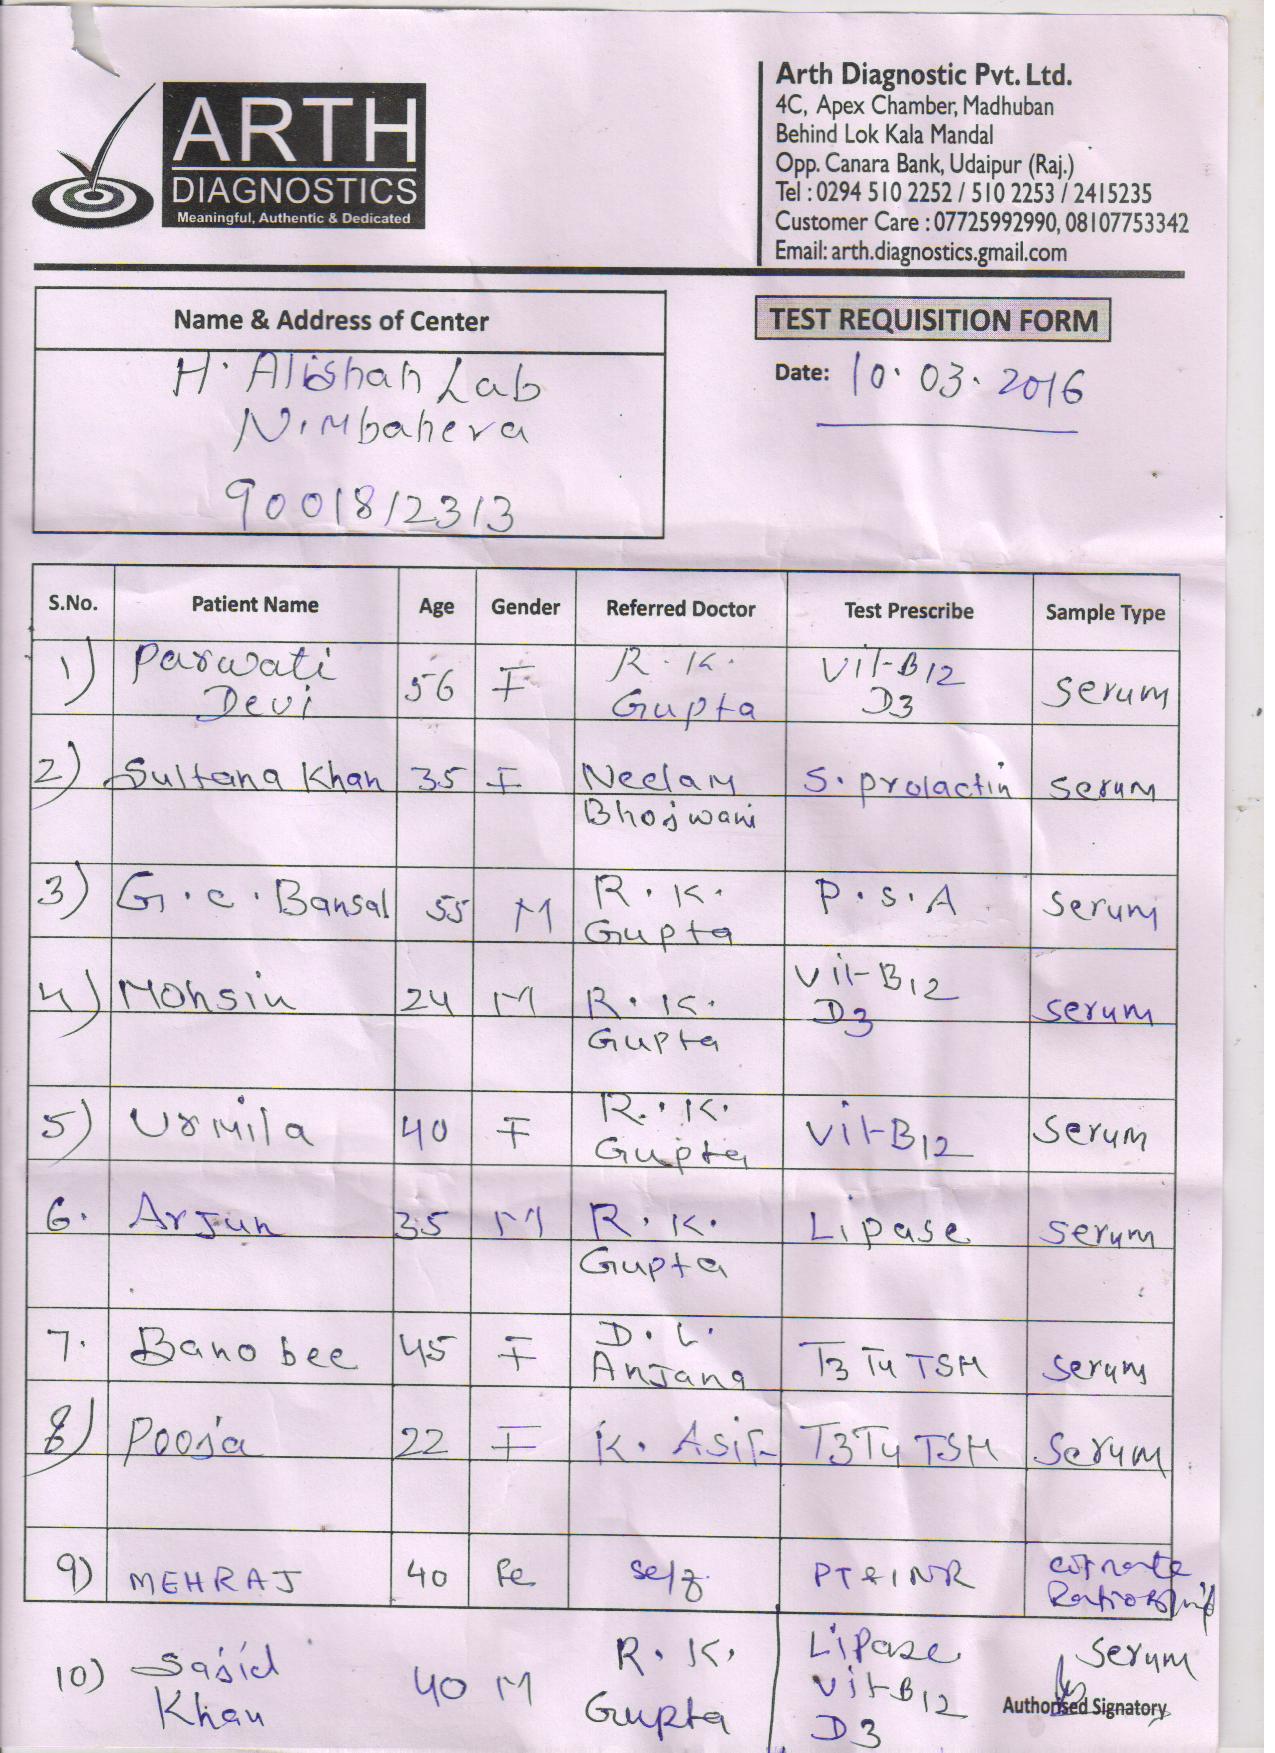 ARTH
DIAGNOSTICS
Meaningful, Authentic & Dedicated
Arth Diagnostic Pvt. Ltd.
4C, Apex Chamber, Madhuban
Behind Lok Kala Mandal
Opp. Canara Bank, Udaipur (Raj.)
Tel : 0294 510 2252 / 510 2253 / 2415235
Customer Care : 07725992990, 08107753342
Email: arth.diagnostics.gmail.com
Name & Address of Center
H. Alishan Lab
Nimbahera
9001812313
TEST REQUISITION FORM
Date: 10.03.2016
S.No. Patient Name Age Gender Referred Doctor Test Prescribe Sample Type
1) Parwati Devi 56 F R.K. Gupta Vit-B12 D3 Serum
2) Sultana Khan 35 F Neelam Bhojwani S. prolactin Serum
3) G.C. Bansal 55 M R.K. Gupta P.S.A Serum
4) Mohsin 24 M R.K. Gupta Vit-B12 D3 Serum
5) Urmila 40 F R.K. Gupta Vit-B12 Serum
6. Arjun 35 M R.K. Gupta Lipase Serum
7. Bano bee 45 F D.L. Anjana T3 T4 TSH Serum
8) Pooja 22 F K. Asif T3 T4 TSH Serum
9) MEHRAJ 40 Fe self PT & INR
10) Sajid Khan 40 M R.K. Gupta Lipase Vit-B12 D3 Serum
Authorised Signatory